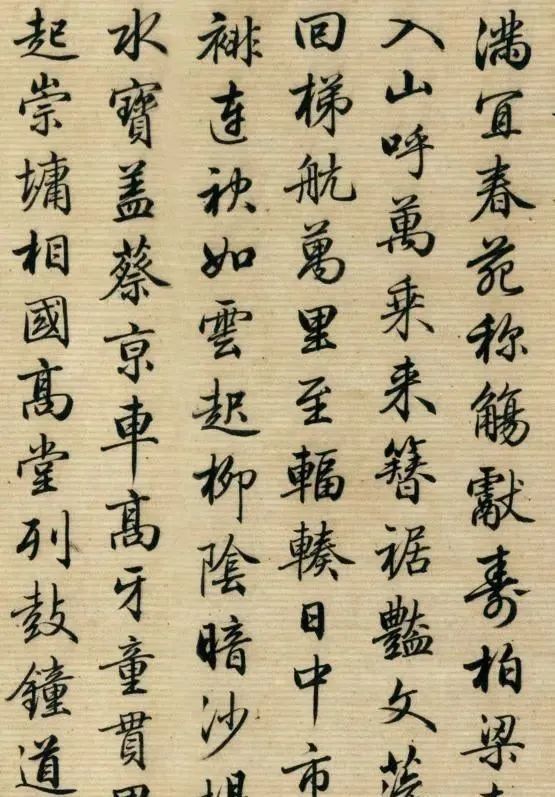 满宜春苑称觴獻壽柏梁
入山呼萬乘来簪裾豔文
回梯航萬里至輻輳日中市
裶連袂如雲起柳陰暗沙堤
水寶盖蔡京車高牙童貫
起崇墉相國高堂列鼓鐘道